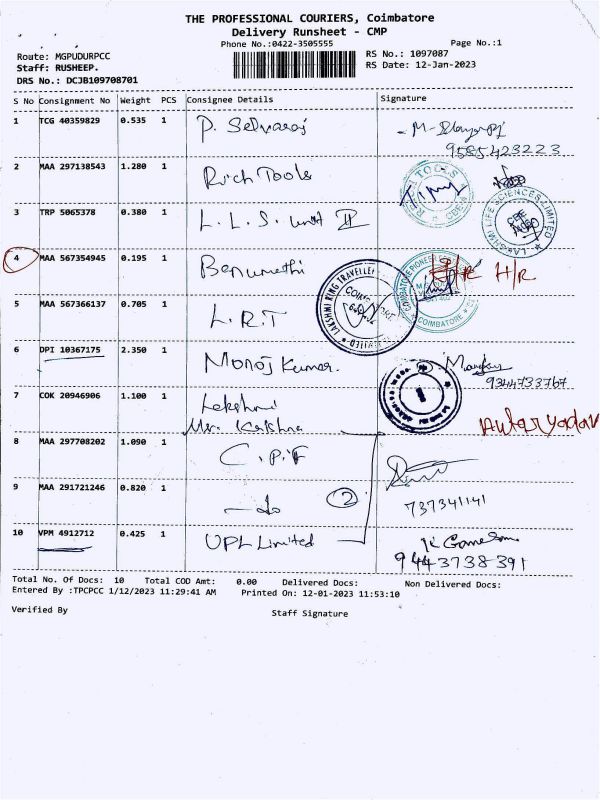 THE PROFESSIONAL COURIERS, Coimbatore
Delivery Runsheet - CMP
Phone No.:0422-3505555
Page No.:1
Route: MGPUDURPCC
RS No.: 1097087
Staff: RUSHEEP.
RS Date: 12-Jan-2023
DRS No.: DCJB109708701
S No Consignment No Weight PCS Consignee Details Signature
1 TCG 40359829 0.535 1 P. Selvaraj
9585423223
2 MAA 297138543 1.280 1 Rich Tools
3 TRP 5065378 0.380 1 L.L.S. unit II
LAKSHMI LIFE SCIENCES LIMITED
4 MAA 567354945 0.195 1 H/R
LAKSHMI RING TRAVELLER
COIMBATORE
5 MAA 567366137 0.705 1 L.R.T
6 DPI 10367175 2.350 1 Manoj Kumar.
9344733767
7 COK 20946906 1.100 1 Lakshmi
Mr. Krishna
8 MAA 297708202 1.090 1
9 MAA 291721246 0.820 1 - do 2
737341141
10 VPM 4912712 0.425 1 UPL Limited
9443738391
Total No. Of Docs: 10 Total COD Amt: 0.00 Delivered Docs: Non Delivered Docs:
Entered By :TPCPCC 1/12/2023 11:29:41 AM Printed On: 12-01-2023 11:53:10
Verified By Staff Signature